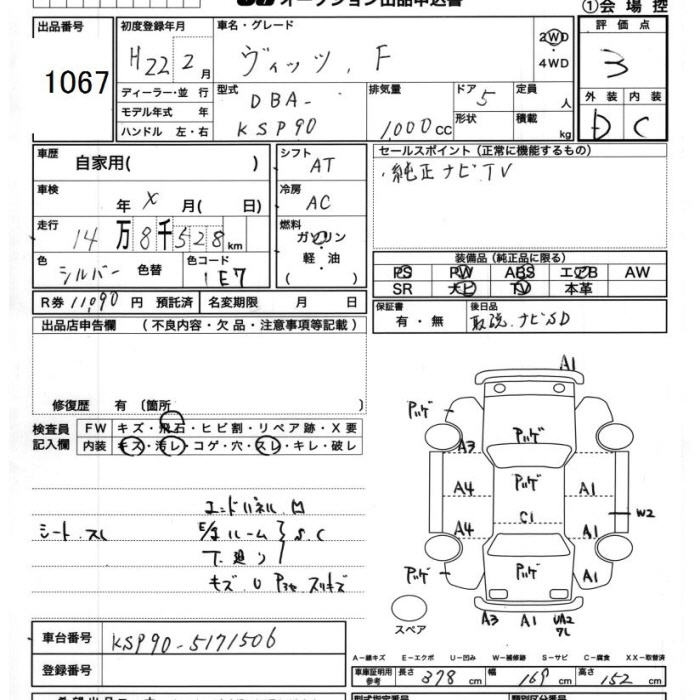 オークション出品申込書
①会場控
出品番号
1067
初度登録年月
H22 2月
車名・グレード
ヴィッツ．F
2WD
・4WD
評価点
3
外装 内装
D C
ディーラー・並行
モデル年式 年
ハンドル 左・右
型式
DBA-
KSP90
排気量
1,000cc
ドア 5
形状
定員 人
積載 kg
車歴 自家用( )
シフト AT
セールスポイント(正常に機能するもの)
・純正ナビTV
車検 年 X 月( 日)
冷房 AC
走行 14万8千528km
燃料
ガソリン
軽・油
( )
色 シルバー 色替
色コード 1E7
装備品(純正品に限る)
PS PW ABS エアB AW
SR ナビ TV 本革
R券 11,090円 預託済
名変期限 月 日
保証書
有・無
後日品
取説、ナビSD
出品店申告欄 (不良内容・欠品・注意事項等記載)
修復歴 有〔箇所 〕
検査員
記入欄
FW キズ・飛石・ヒビ割・リペア跡・X要
内装 キズ・汚レ・コゲ・穴・スレ・キレ・破レ
エンドパネル 凹
シート．スレ
E/gルーム } S.C
下廻り
キズ．U
A1
A3
A4
A4
C1
A1
A1
A1
W2
A3 A1 UA2
スペア
車台番号 KSP90-5171506
登録番号
A−線キズ E−エクボ U−凹み W−補修跡 S−サビ C−腐食 XX−取替済
車庫証明用
参考
長さ 378cm 幅 169cm 高さ 152cm
型式指定番号
類別区分番号